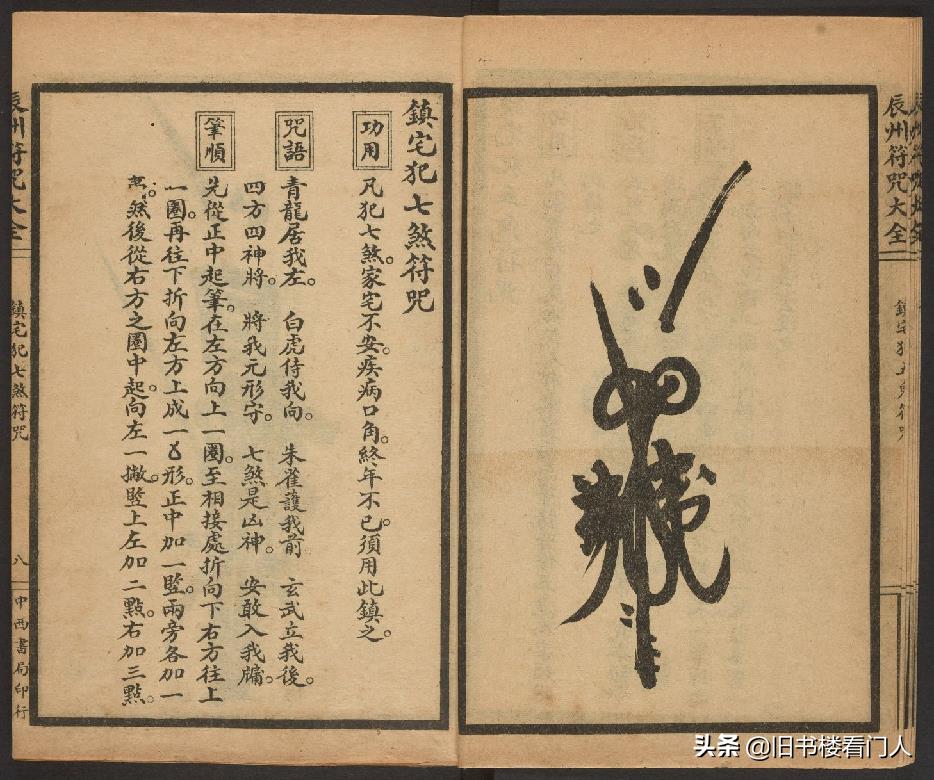 辰州符咒大全
鎮宅犯七煞符咒
鎮宅犯七煞符咒
功用 凡犯七煞。家宅不安。疾病口角。終年不已。須用此鎮之。
咒語 青龍居我左。 白虎侍我向。 朱雀護我前 玄武立我後。
四方四神將。 將我元形守。 七煞是凶神。 安敢入我牖。
筆順 先從正中起筆。在左方向上一圈。至相接處折向下右方往上
一圈。再往下折向左方上成一形。正中加一竪。兩旁各加一
。然後從右方之圈中起。向左一撇。竪上左加二點。右加三點。
辰州符咒大全
鎮宅犯七煞符咒
八
中西書局印行
头条 @旧书楼看门人